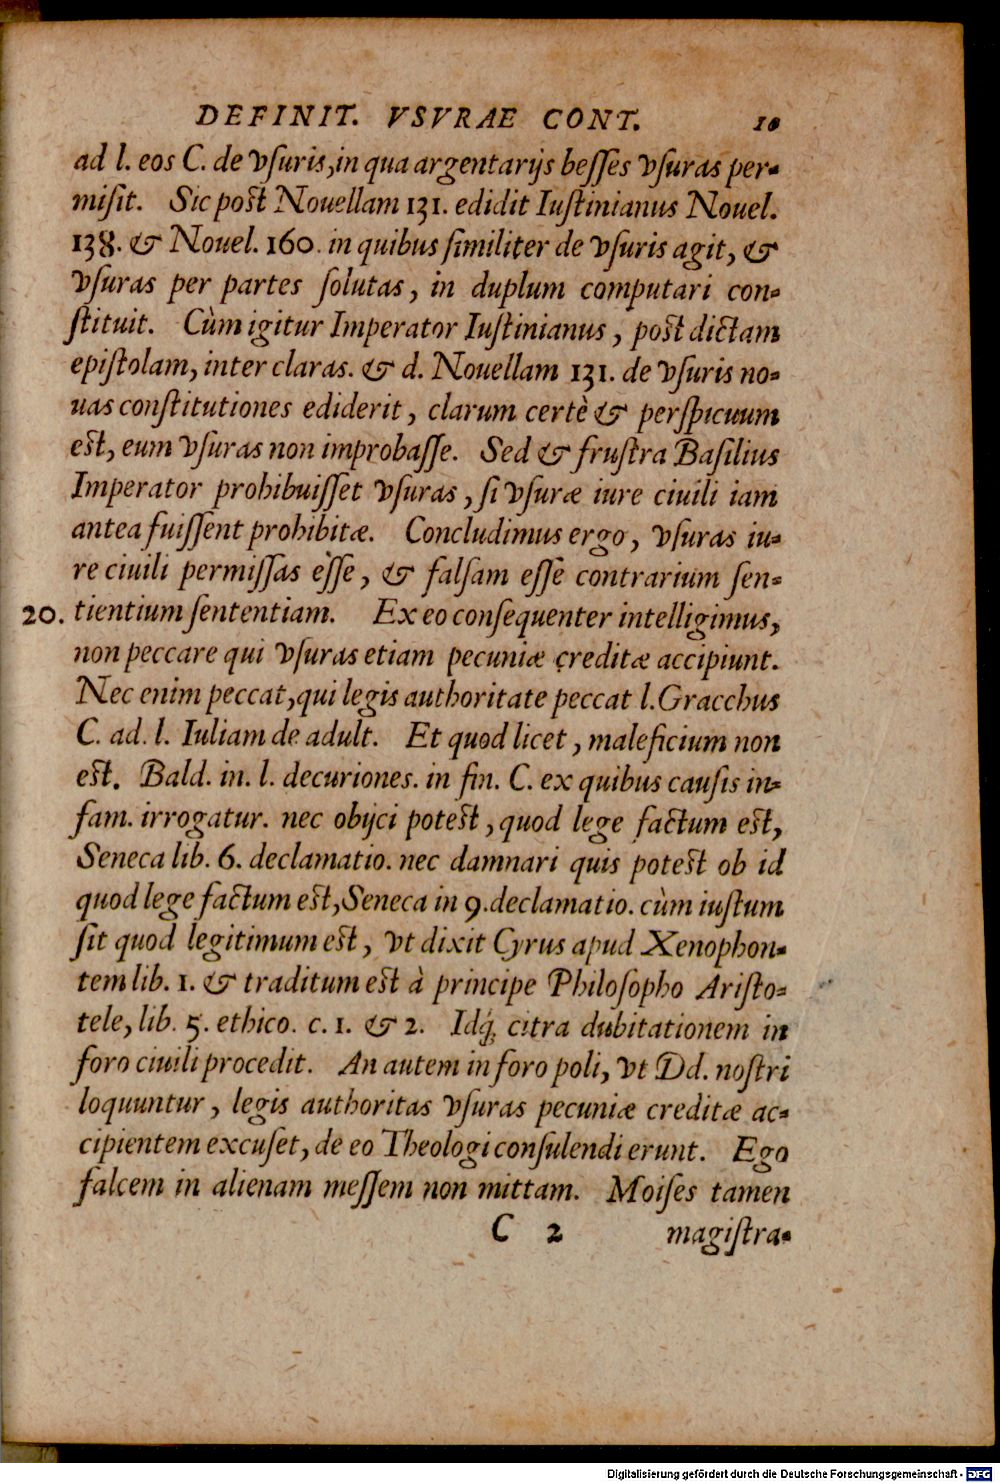 DEFINIT. VSVRAE CONT. 10
ad l. eos C. de vſuris, in qua argentarijs beſſes vſuras per-
miſit. Sic poſt Nouellam 131. edidit Iuſtinianus Nouel.
138. & Nouel. 160. in quibus ſimiliter de vſuris agit, &
vſuras per partes ſolutas, in duplum computari con-
ſtituit. Cùm igitur Imperator Iuſtinianus, poſt dictam
epiſtolam, inter claras. & d. Nouellam 131. de vſuris no-
uas conſtitutiones ediderit, clarum certè & perſpicuum
eſt, eum vſuras non improbaſſe. Sed & fruſtra Baſilius
Imperator prohibuiſſet vſuras, ſi vſuræ iure ciuili iam
antea fuiſſent prohibitæ. Concludimus ergo, vſuras iu-
re ciuili permiſſas eſſe, & falſam eſſe contrarium ſen-
20. tientium ſententiam. Ex eo conſequenter intelligimus,
non peccare qui vſuras etiam pecuniæ creditæ accipiunt.
Nec enim peccat, qui legis authoritate peccat l. Gracchus
C. ad. l. Iuliam de adult. Et quod licet, maleficium non
eſt. Bald. in. l. decuriones. in fin. C. ex quibus cauſis in-
fam. irrogatur. nec obijci poteſt, quod lege factum eſt,
Seneca lib. 6. declamatio. nec damnari quis poteſt ob id
quod lege factum eſt, Seneca in 9. declamatio. cùm iuſtum
ſit quod legitimum eſt, vt dixit Cyrus apud Xenophon-
tem lib. 1. & traditum eſt à principe Philoſopho Ariſto-
tele, lib. 5. ethico. c. 1. & 2. Idq́; citra dubitationem in
foro ciuili procedit. An autem in foro poli, vt Dd. noſtri
loquuntur, legis authoritas vſuras pecuniæ creditæ ac-
cipientem excuſet, de eo Theologi conſulendi erunt. Ego
falcem in alienam meſſem non mittam. Moiſes tamen
C 2 magiſtra-
Digitalisierung gefördert durch die Deutsche Forschungsgemeinschaft - DFG